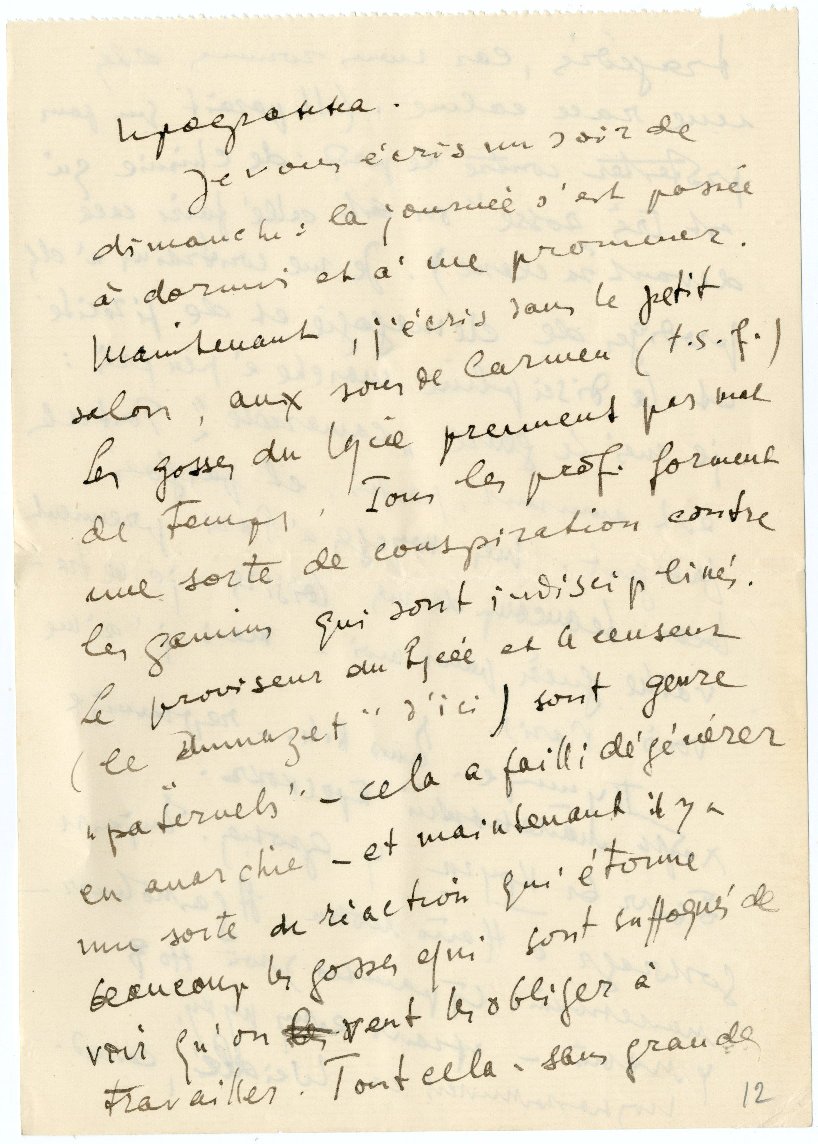 программа.
Je vous écris un soir de
dimanche : la journée s'est passée
à dormir et à me promener.
Maintenant, j'écris dans le petit
salon, aux sons de Carmen (t.s.f.)
Les gosses du lycée prennent pas mal
de temps. Tous les prof. forment
une sorte de conspiration contre
les gamins qui sont indisciplinés.
Le proviseur du lycée et le censeur
(le " d'ici) sont genre
"paternels" – cela a failli dégénérer
en anarchie – et maintenant il y a
une sorte de réaction qui étonne
beaucoup les gosses qui sont suffoqués de
voir qu'on veut les obliger à
travailler. Tout cela – sans grande
12